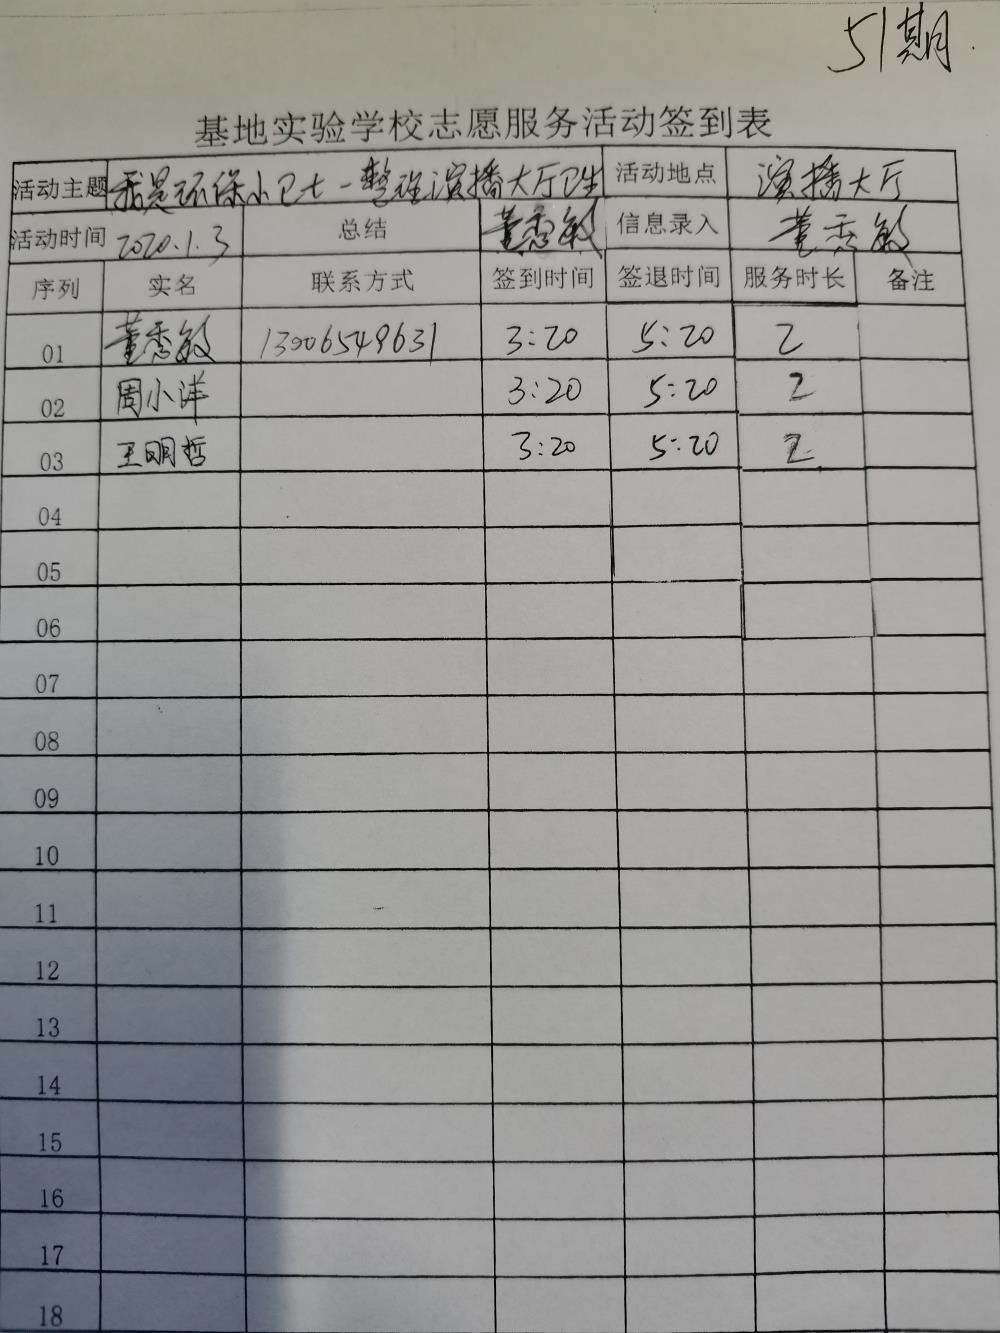 51期
基地实验学校志愿服务活动签到表
活动主题 我是环保小卫士-整理演播大厅卫生 活动地点 演播大厅
活动时间 2020.1.3 总结 董秀敏 信息录入 董秀敏
序列 实名 联系方式 签到时间 签退时间 服务时长 备注
01 董秀敏 13006549631 3:20 5:20 2
02 周小洋 3:20 5:20 2
03 王明哲 3:20 5:20 2
04
05
06
07
08
09
10
11
12
13
14
15
16
17
18